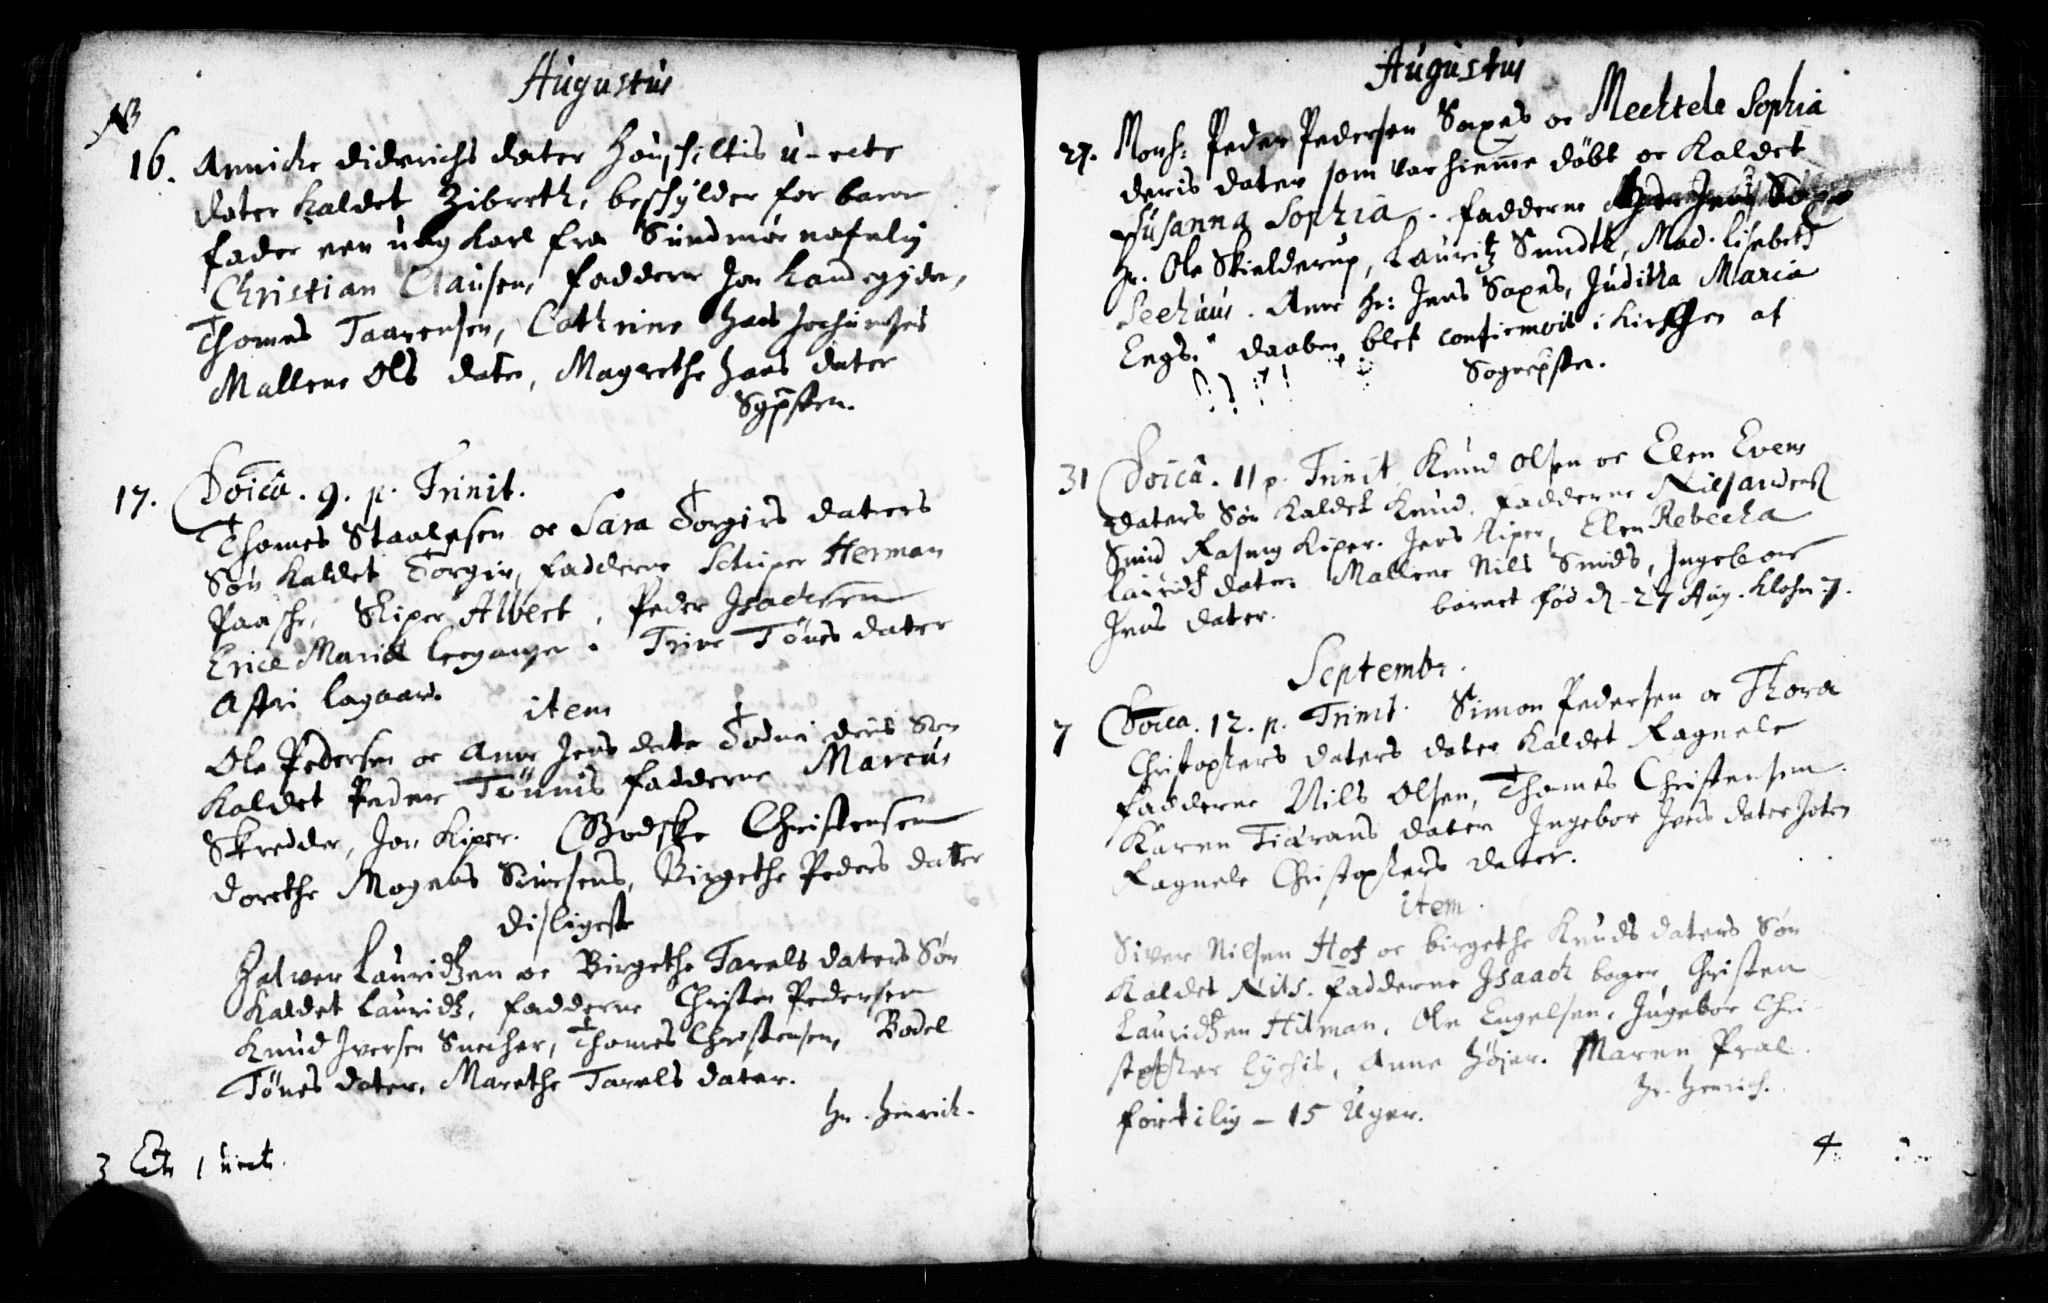 Augustus
NB
16. Annicke Diderichs dater u-ecte
dater kaldet Zibreth, beskylder for barne
fader een ung karl fra Sundmør nafnlig
Christian Clausen, faddere Jon
Thomes Taaresen, Cathrine Hans Jochumses
Mallene Ols dater, Magrethe Hans dater
17. Doica. 9. p. Trinit.
Thomes Staalesen oc Sara Torgirs daters
Søn kaldet Torgir, fadderne Schiper Herman
Paasche, Skiper Albert, Peder Isachsen
Maria Trine Tønes dater
Astri
item
Ole Pedersen oc Anne Jens dater Søn
kaldet Peder Tønnis fadderne Marcus
Skredder, Jon Kiper. Bodske Christensen
Dorethe Mogens Birgethe Peders dater
disligeste
Lauridtzen oc Birgethe Tarels daters Søn
kaldet Lauridtz, fadderne Christen Pedersen
Knud Iversen Snecker, Thomes Christensen, Bodel
Tønes dater, Marethe Tarels dater.
Hr. Henrich.
3 Ecte 1 uecte.
Augustus
27. Monsr: Peder Pedersen Saxes oc Mechtele Sophia
deris dater som var hieme døbt oc kaldet
Susanna Sophia. fadderne
Hr. Ole Skielderup, Lauritz Sundt, Mad. Lisebeth
Seehuus. Anne Hr: Jens Saxes, Juditha Maria
Engs. daaben blef confirmerit i kircken af
Sognepsten.
31 Doica. 11 p. Trinit. Knud Olsen oc Elen Evens
daters Søn kaldet Knud. fadderne Nils
Smid Rasmus Kiper. Jens Kiper, Elen Rebecka
Lauridtz dater Mallene Nils Smids, Ingebor
Jens dater. barnet fød d. 27 Aug. Klocken 7.
Septembr.
7 Doica. 12. p. Trinit. Simon Pedersen oc Thora
Christophers daters dater kaldet Ragnele
fadderne Nils Olsen, Thomes Christensen.
Karen dater Ingebor dater
Ragnele Christophers dater.
item.
Siver Nilsen Hof oc birgethe Knuds daters Søn
kaldet Nils. fadderne Isaach bager, Christen
Lauridtzen Hitman, Ole Engelsen, Ingebor Chri-
stopher Lychis, Anne Højer. Maren Pral.
Hr. Henrich.
15 Uger.
4